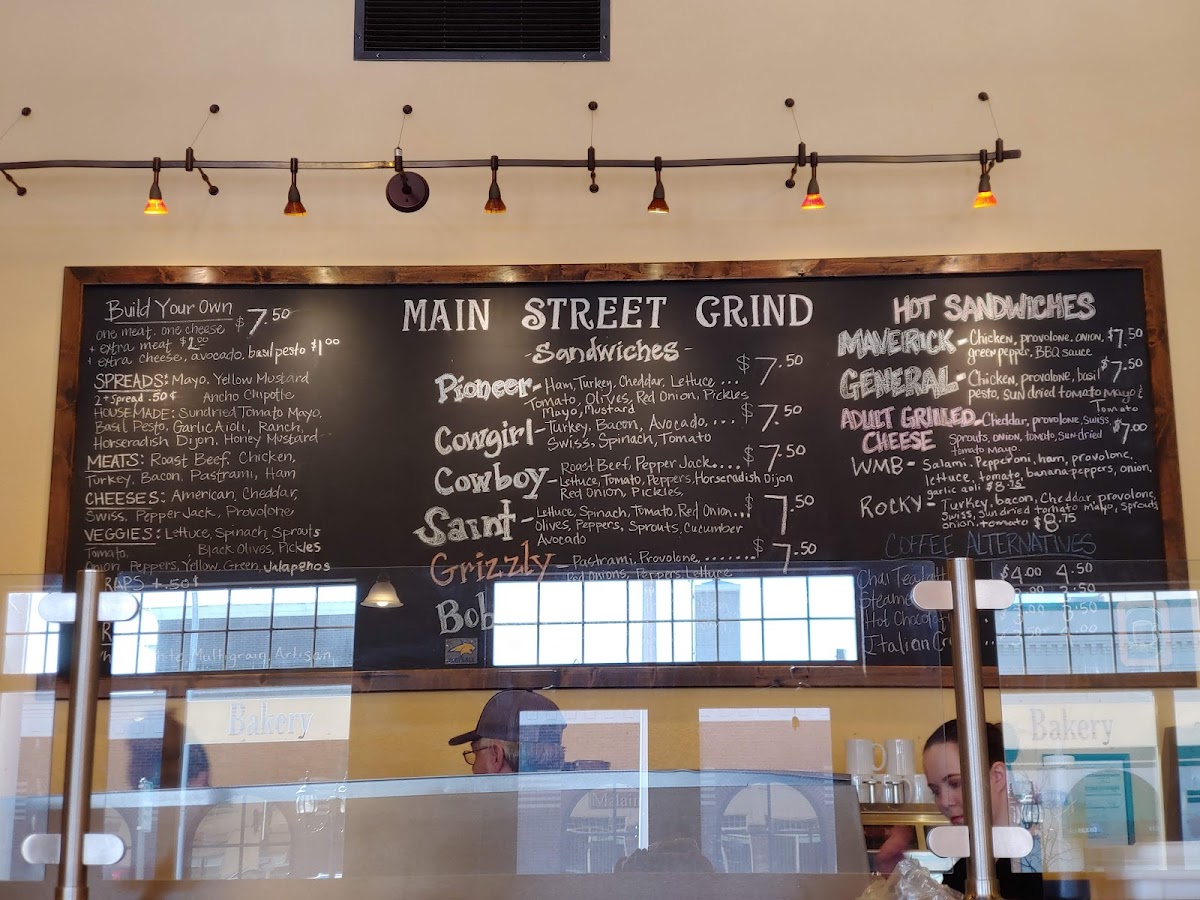 Build Your Own
one meat, one cheese $7.50
+ extra meat $2.00
+ extra cheese, avocado, basil pesto $1.00
SPREADS: Mayo, Yellow Mustard
2+ Spread .50¢ Ancho Chipotle
HOUSEMADE: Sundried Tomato Mayo,
Basil Pesto, Garlic Aioli, Ranch,
Horseradish Dijon, Honey Mustard
MEATS: Roast Beef, Chicken,
Turkey, Bacon, Pastrami, Ham
CHEESES: American, Cheddar,
Swiss, Pepper Jack, Provolone
VEGGIES: Lettuce, Spinach, Sprouts
Tomato, Black Olives, Pickles
Onion, Peppers, Yellow, Green, Jalapeños
RAPS + .50¢
Multigrain, Artisan
MAIN STREET GRIND
-Sandwiches-
Pioneer- Ham, Turkey, Cheddar, Lettuce ... $7.50
Tomato, Olives, Red Onion, Pickles
Mayo, Mustard
Cowgirl- Turkey, Bacon, Avocado, ... $7.50
Swiss, Spinach, Tomato
Cowboy- Roast Beef, Pepper Jack.... $7.50
Lettuce, Tomato, Peppers, Horseradish Dijon
Red Onion, Pickles,
Saint- Lettuce, Spinach, Tomato, Red Onion... $7.50
Olives, Peppers, Sprouts, Cucumber
Avocado
Grizzly - Pastrami, Provolone, ....... $7.50
Red Onions, Peppers, Lettuce
Bob
HOT SANDWICHES
MAVERICK- Chicken, provolone, onion, $7.50
green pepper, BBQ sauce
GENERAL- Chicken, provolone, basil $7.50
pesto, sun dried tomato mayo &
Tomato
ADULT GRILLED CHEESE - Cheddar, provolone, Swiss, $7.00
Sprouts, onion, tomato, Sun dried
tomato mayo.
WMB - Salami, Pepperoni, ham, provolone,
lettuce, tomato, banana peppers, onion,
garlic aoli $8.75
ROCKY- Turkey, bacon, Cheddar, provolone,
Swiss, Sun dried tomato mayo, Sprouts
onion, tomato $8.75
COFFEE ALTERNATIVES
Chai Tea Latte $4.00 4.50
Steame
Hot Chocol
Italian Cr
Bakery
Bakery